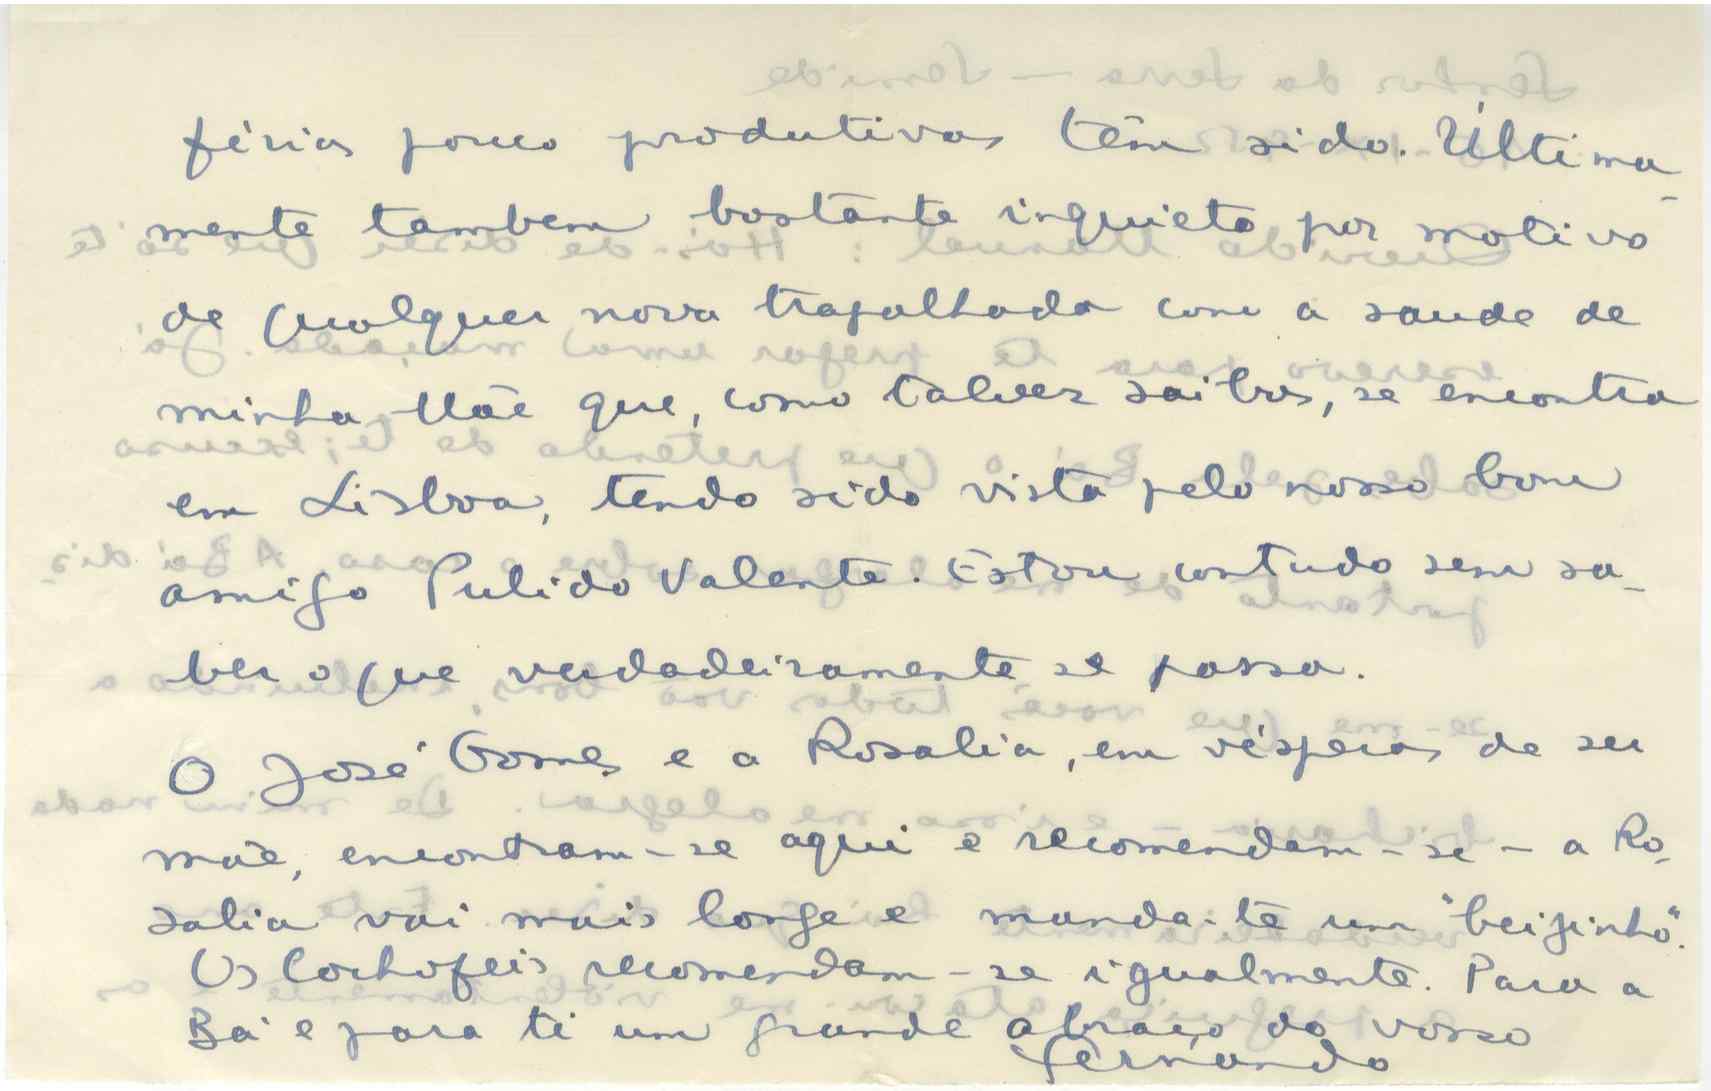 férias pouco produtivas têm sido. Última-
mente tambem bastante inquieto por motivo
de qualquer nova trapalhada com a saude de
minha Mãe que, como talvez saibas, se encontra
em Lisboa, tendo sido vista pelo nosso bom
amigo Pulido Valente. Estou contudo sem sa-
ber o que verdadeiramente se passa.
O José Gomes e a Rosalia, em vésperas de ser
mãe, encontram-se aqui e recomendam-se - a Ro-
salia vai mais longe e manda-te um "beijinho".
Os Cochofeis recomendam-se igualmente. Para a
Bá e para ti um grande abraço do vosso
Fernando